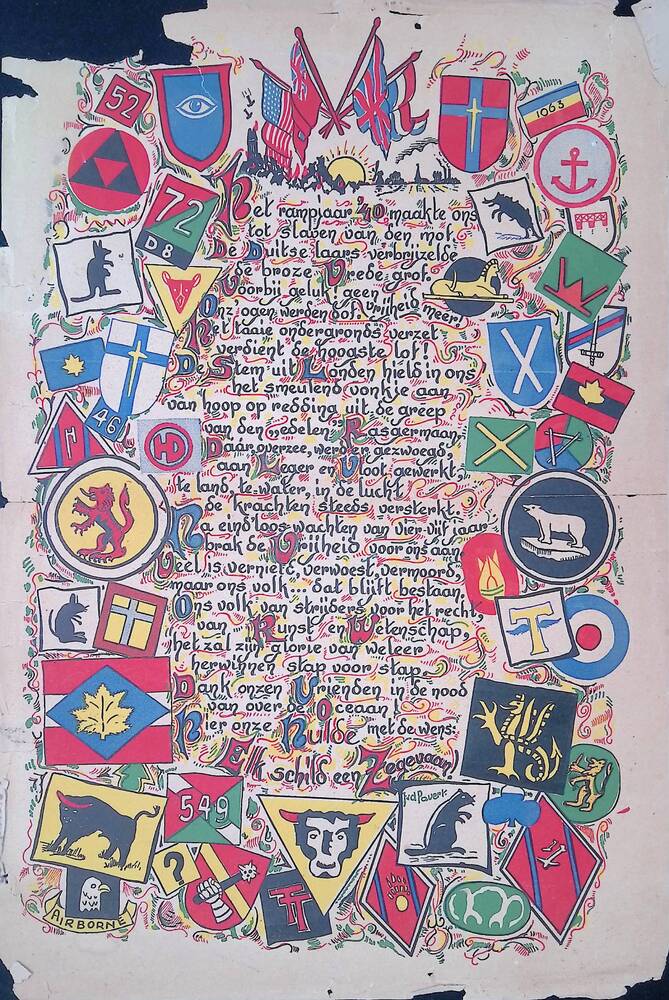 52
1063
72
D8
Het rampjaar '40 maakte ons
tot slaven van den mof.
De Duitse laars verbrijzelde
de broze Vrede grof.
Voorbij geluk! geen vrijheid meer!
Onz' ogen werden dof.
Het taaie ondergronds verzet
verdient de hoogste lof!
De Stem uit Londen hield in ons
het smeulend vonkje aan
van hoop op redding uit de greep
van den „edelen" Rasgermaan,
Daar overzee, werd er gezwoegd,
aan Leger en Vloot gewerkt,
te land te water, in de lucht
de krachten steeds versterkt.
Na eind'loos wachten van vier-vijf jaar
brak de Vrijheid voor ons aan.
Veel is vernield, verwoest, vermoord,
maar ons volk... dat blijft bestaan,
Ons volk van strijders voor het recht,
van Kunst en Wetenschap,
het zal zijn glorie van weleer
herwinnen stap voor stap.
Dank onzen Vrienden in de nood
van over de Oceaan
Hier onze Hulde met de wens:
Elk schild een Zegevaan!
46
HD
T
549
?
AIRBORNE
TT